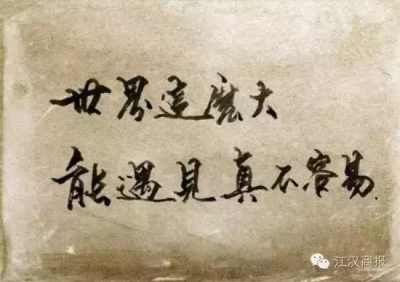 世界這麼大
能遇見真不容易.
江汉商报